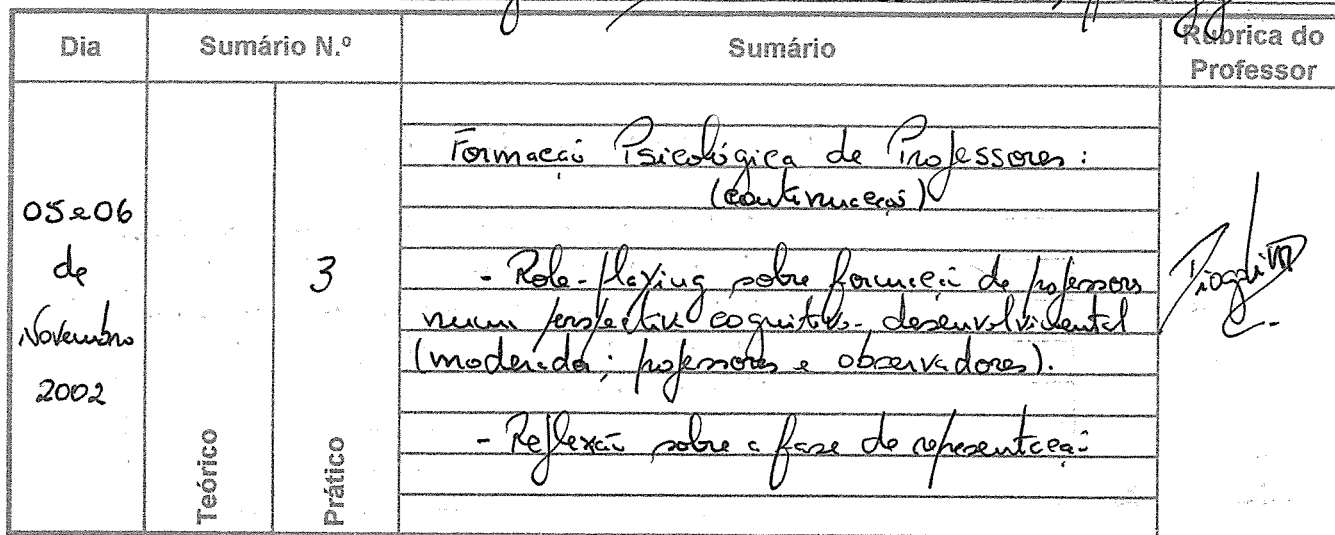 Dia
Sumário N.º
Sumário
Rubrica do
Professor
05 e 06
de
Novembro
2002
Teórico
3
Prático
Formação Psicológica de Professores:
(continuação)
- Role-playing sobre formação de professores
numa perspectiva cognitivo-desenvolvimental
(moderador; professores e observadores).
- Reflexão sobre a fase de representação